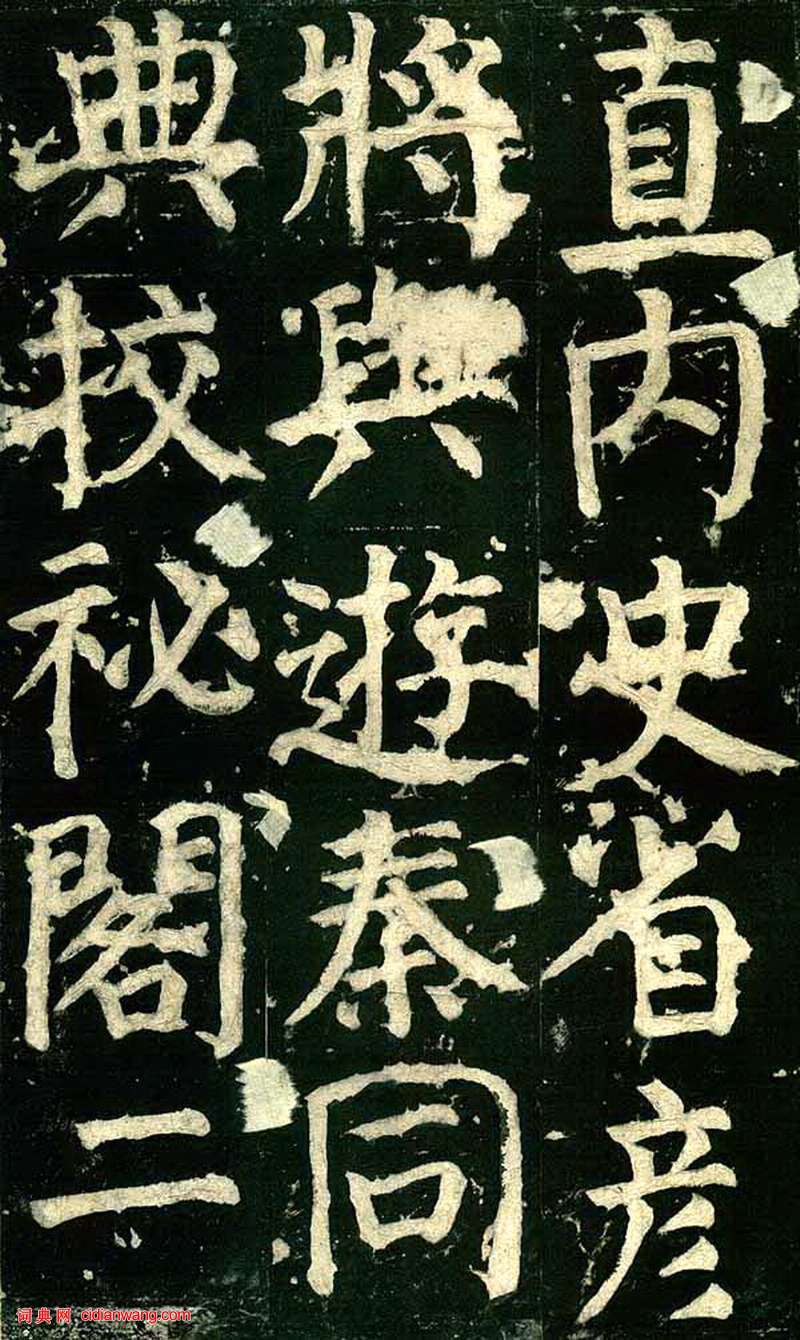 直內史省彦
將與遊秦同
典校祕閣二
词典网 cidianwang.com